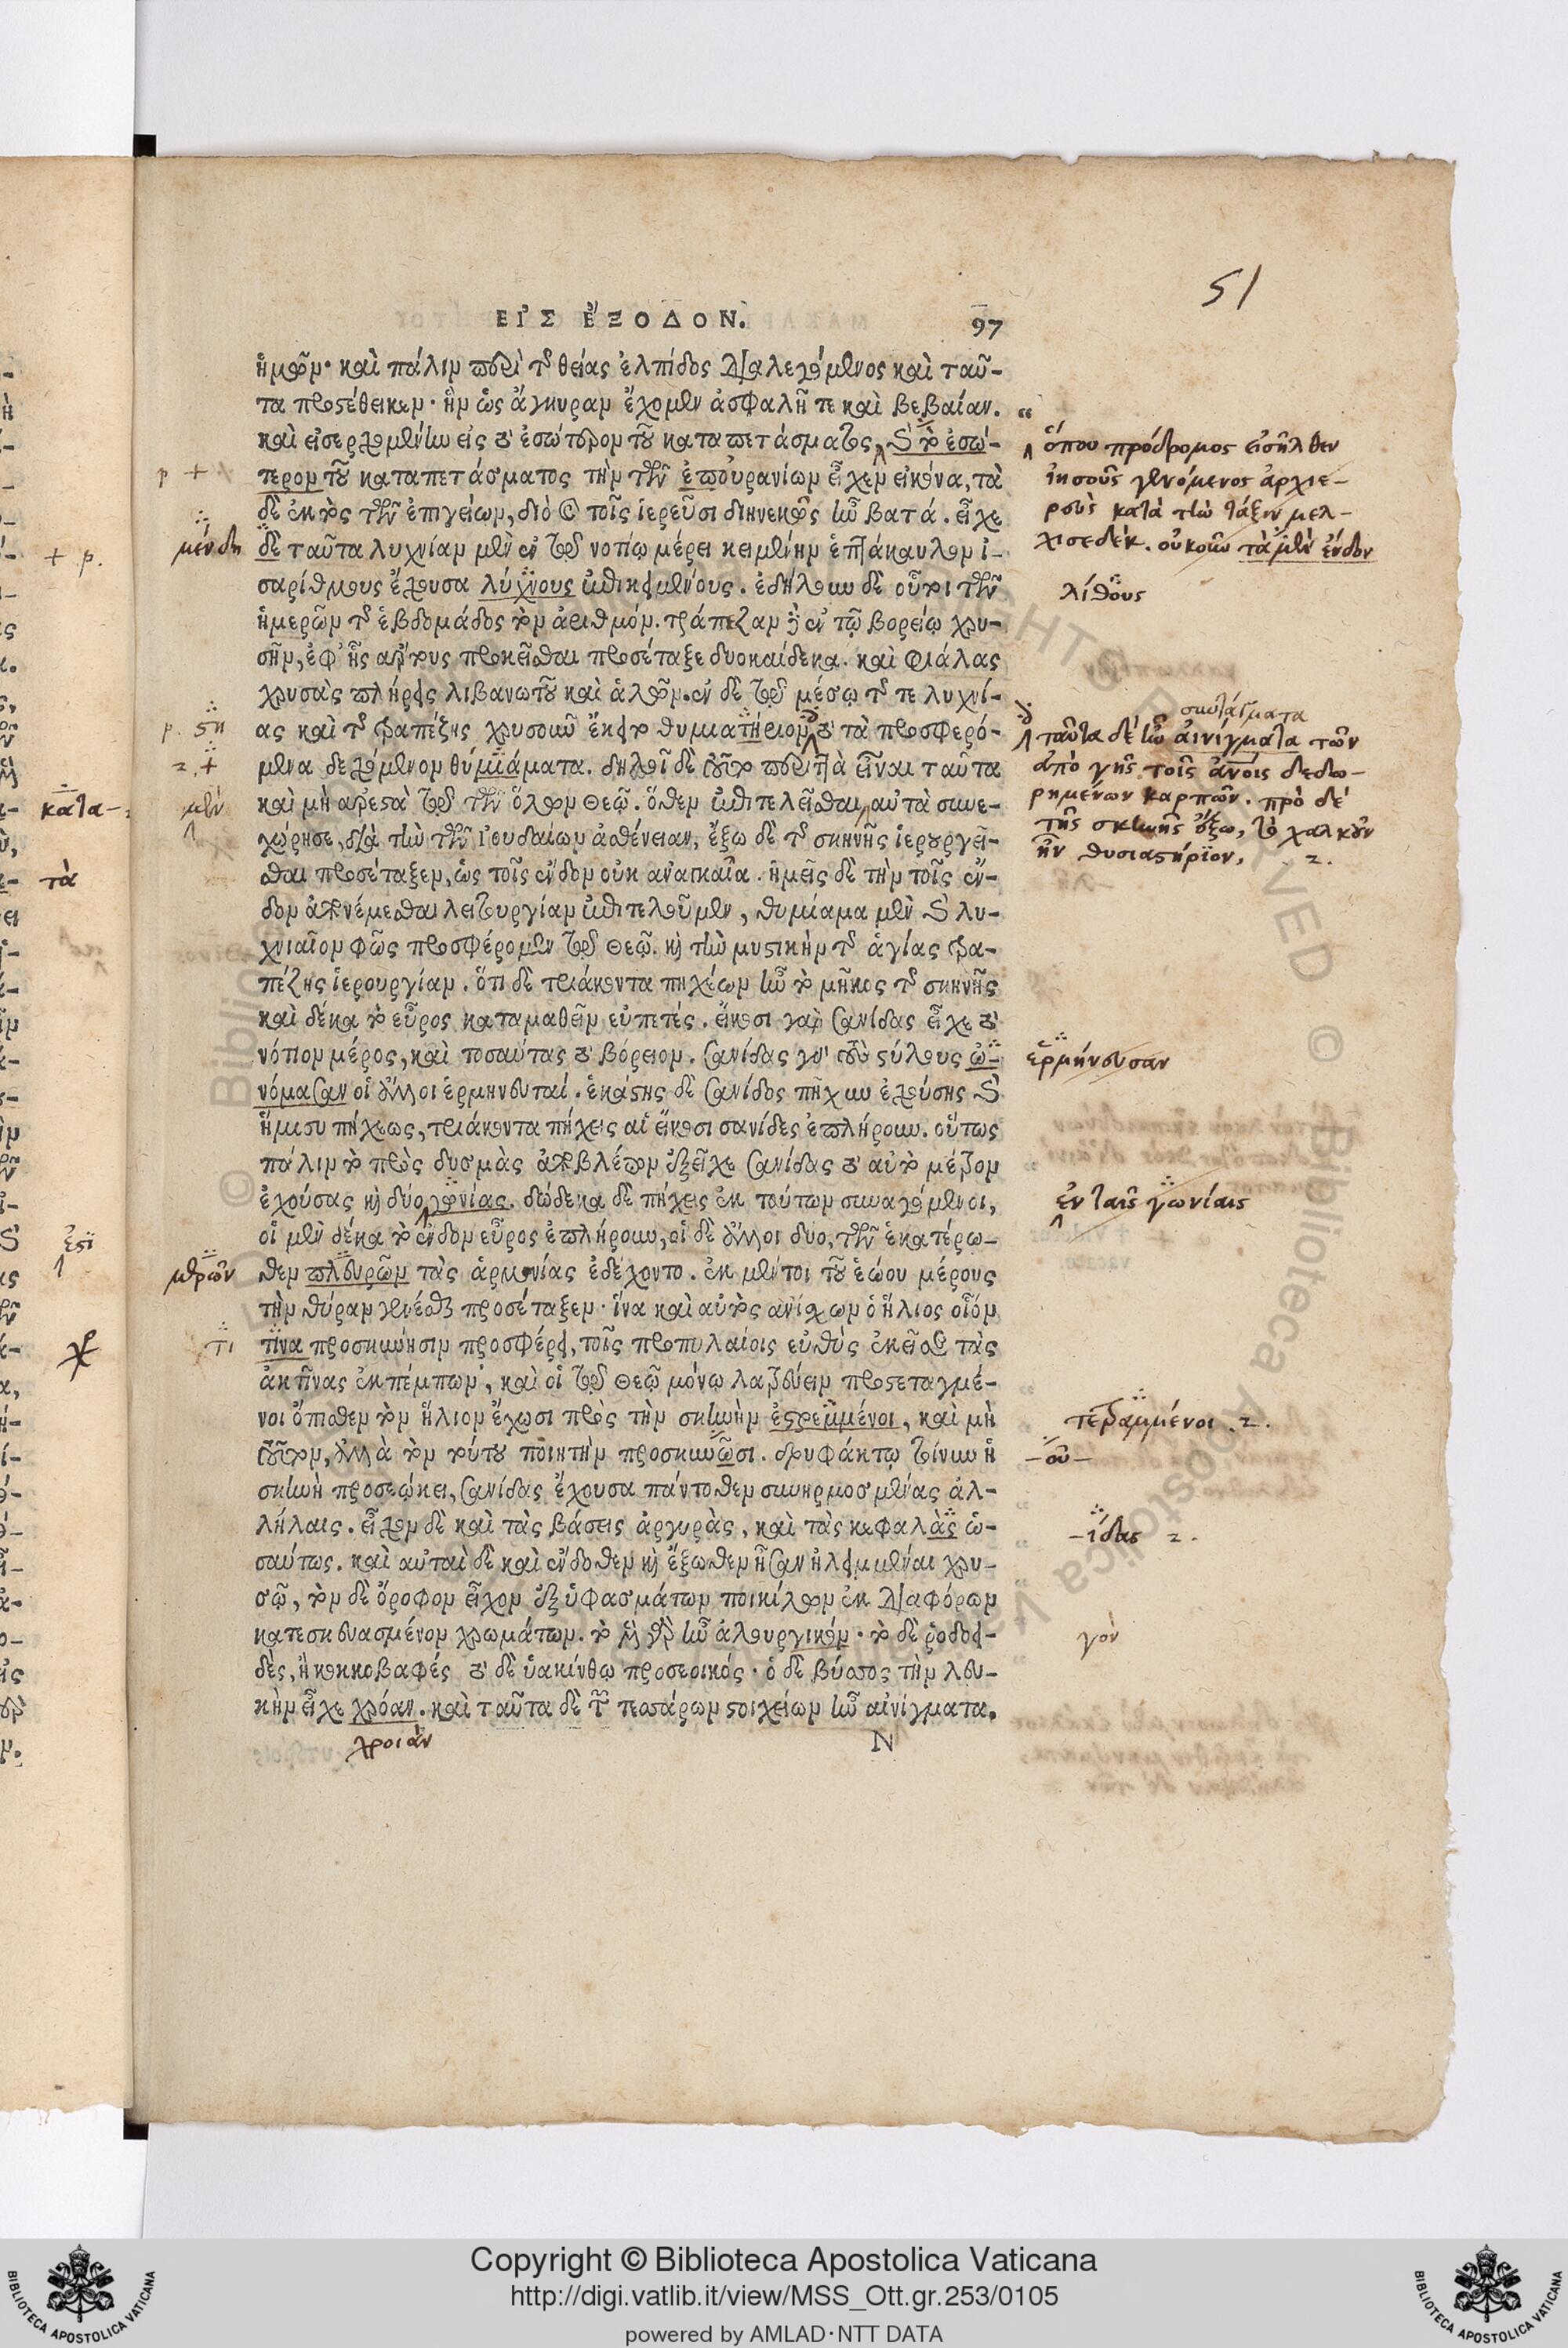 51
ΕΙ᾿Σ Ε῎ΞΟΔΟΝ. 97
ἡμῶν· καὶ πάλιν περὶ τῆς θείας ἐλπίδος διαλεγόμενος καὶ ταῦ-
τα προστέθεικεν· ἣν ὡς ἄγκυραν ἔχομεν ἀσφαλῆ τε καὶ βεβαίαν.
καὶ εἰσερχομένην εἰς τὸ ἐσώτερον τοῦ καταπετάσματος, καὶ τὸ ἐσώ-
τερον τοῦ καταπετάσματος τὴν τῶν ἐπουρανίων εἶχεν εἰκόνα, τὰ
δὲ ἐκτὸς τῶν ἐπιγείων, διὸ καὶ τοῖς ἱερεῦσι διηνεκῶς ἦν βατά. εἶχε
δὲ ταῦτα λυχνίαν μὲν ἐν τῷ νοτίῳ μέρει κειμένην ἑπτάκαυλον ἰ-
σαρίθμους ἔχουσα λύχνους ἐπικειμένους. ἐδήλουν δὲ οὗτοι τῶν
ἡμερῶν τῆς ἑβδομάδος τὸν ἀριθμόν. τράπεζαν δὲ ἐν τῷ βορείῳ χρυ-
σῆν, ἐφ᾿ ἧς ἄρτους προκεῖσθαι προσέταξε δυοκαίδεκα. καὶ φιάλας
χρυσὰς πλήρεις λιβανωτοῦ καὶ ἁλῶν. ἐν δὲ τῷ μέσῳ τῆς τε λυχνί-
ας καὶ τῆς τραπέζης χρυσοῦν ἔκειτο θυμιατήριον τὸ τὰ προσφερό-
μενα δεχόμενον θυμιάματα. δηλοῖ δὲ τοῦτο περιττὰ εἶναι ταῦτα
καὶ μὴ ἀρεστὰ τῷ τῶν ὅλων Θεῷ. ὅθεν ἐπιτελεῖσθαι αὐτὰ συνε-
χώρησε, διὰ τὴν τῶν Ἰουδαίων ἀσθένειαν, ἔξω δὲ τῆς σκηνῆς ἱερουργεῖ-
σθαι προσέταξεν, ὡς τοῖς ἔνδον οὐκ ἀναγκαῖα. ἡμεῖς δὲ τὴν τοῖς ἔν-
δον ἀπονέμεσθαι λειτουργίαν ἐπιτελοῦμεν, θυμίαμα μὲν καὶ λυ-
χνιαῖον φῶς προσφέρομεν τῷ Θεῷ. καὶ τὴν μυστικὴν τῆς ἁγίας τρα-
πέζης ἱερουργίαν. ὅτι δὲ τριάκοντα πηχέων ἦν τὸ μῆκος τῆς σκηνῆς
καὶ δέκα τὸ εὖρος καταμαθεῖν εὐπετές. εἴκοσι γὰρ σανίδας εἶχε τὸ
νότιον μέρος, καὶ τοσαύτας τὸ βόρειον. σανίδας γὰρ τοὺς στύλους ὠ-
νόμασαν οἱ ἄλλοι ἑρμηνευταί. ἑκάστης δὲ σανίδος πῆχυν ἐχούσης καὶ
ἥμισυ πήχεως, τριάκοντα πήχεις αἱ εἴκοσι σανίδες ἐπλήρουν. οὕτως
πάλιν τὸ πρὸς δυσμὰς ἀποβλέπον ἓξ εἶχε σανίδας τὸ αὐτὸ μέτρον
ἐχούσας καὶ δύο γωνίας. δώδεκα δὲ πήχεις ἐκ τούτων συναγόμενοι,
οἱ μὲν δέκα τὸ ἔνδον εὖρος ἐπλήρουν, οἱ δὲ ἄλλοι δυο, τῶν ἑκατέρω-
θεν πλευρῶν τὰς ἁρμονίας ἐδέχοντο. ἐκ μέντοι τοῦ ἑώου μέρους
τὴν θύραν γενέσθαι προσέταξεν· ἵνα καὶ αὐτὸς ἀνίσχων ὁ ἥλιος οἷόν
τινα προσκύνησιν προσφέρῃ, τοῖς προπυλαίοις εὐθὺς ἐκεῖσε τὰς
ἀκτῖνας ἐκπέμπων, καὶ οἱ τῷ Θεῷ μόνῳ λατρεύειν προστεταγμέ-
νοι ὄπισθεν τὸν ἥλιον ἔχωσι πρὸς τὴν σκηνὴν ἐστρεμμένοι, καὶ μὴ
τοῦτον, ἀλλὰ τὸν τούτου ποιητὴν προσκυνῶσι. δρυφάκτῳ τίνυν ἡ
σκηνὴ προσεῴκει, σανίδας ἔχουσα πάντοθεν συνηρμοσμένας ἀλ-
λήλαις. εἶχον δὲ καὶ τὰς βάσεις ἀργυρὰς, καὶ τὰς κεφαλὰς ὡ-
σαύτως. καὶ αὐταὶ δὲ καὶ ἔνδοθεν καὶ ἔξωθεν ἦσαν ἠλειμμέναι χρυ-
σῷ, τὸν δὲ ὄροφον εἶχον ἐξ ὑφασμάτων ποικίλων ἐκ διαφόρων
κατεσκευασμένον χρωμάτων. τὸ μὲν γὰρ ἦν ἁλουργικόν· τὸ δὲ ῥοδοει-
δὲς, ἢ κοκκοβαφές τὸ δὲ ὑακίνθῳ προσεοικός· ὁ δὲ βύσσος τὴν λευ-
κὴν εἶχε χρόαν. καὶ ταῦτα δὲ τῶν τεσσάρων στοιχείων ἦν αἰνίγματα.
χροιὰν
N
p +
μέν δη
p. στη
2. +
μὲν
μερῶν
τι
+ p.
κατα-
τὰ
ἐστὶ
ὅπου πρόδρομος εἰσῆλθεν
ἰησοῦς γενόμενος ἀρχιε-
ρεὺς κατὰ τὴν τάξιν μελ-
χισεδέκ. οὐκοῦν τὰ μὲν ἔνδον
λίθους
ταῦτα δὲ ἦν αἰνίγματα τῶν
ἀπὸ γῆς τοῖς ἀνοις δεδω-
ρημένων καρπῶν. πρὸ δὲ
τῆς σκηνῆς ἔξω, τὸ χαλκοῦν
ἦν θυσιαστήριον, 2.
ἑρμήνευσαν
ἐν ταῖς γωνίαις
τετραμμένοι. 2.
-οῦ-
-ίδας 2.
γὸν
Copyright © Biblioteca Apostolica Vaticana
http://digi.vatlib.it/view/MSS_Ott.gr.253/0105
powered by AMLAD·NTT DATA
BIBLIOTECA APOSTOLICA VATICANA
BIBLIOTECA APOSTOLICA VATICANA